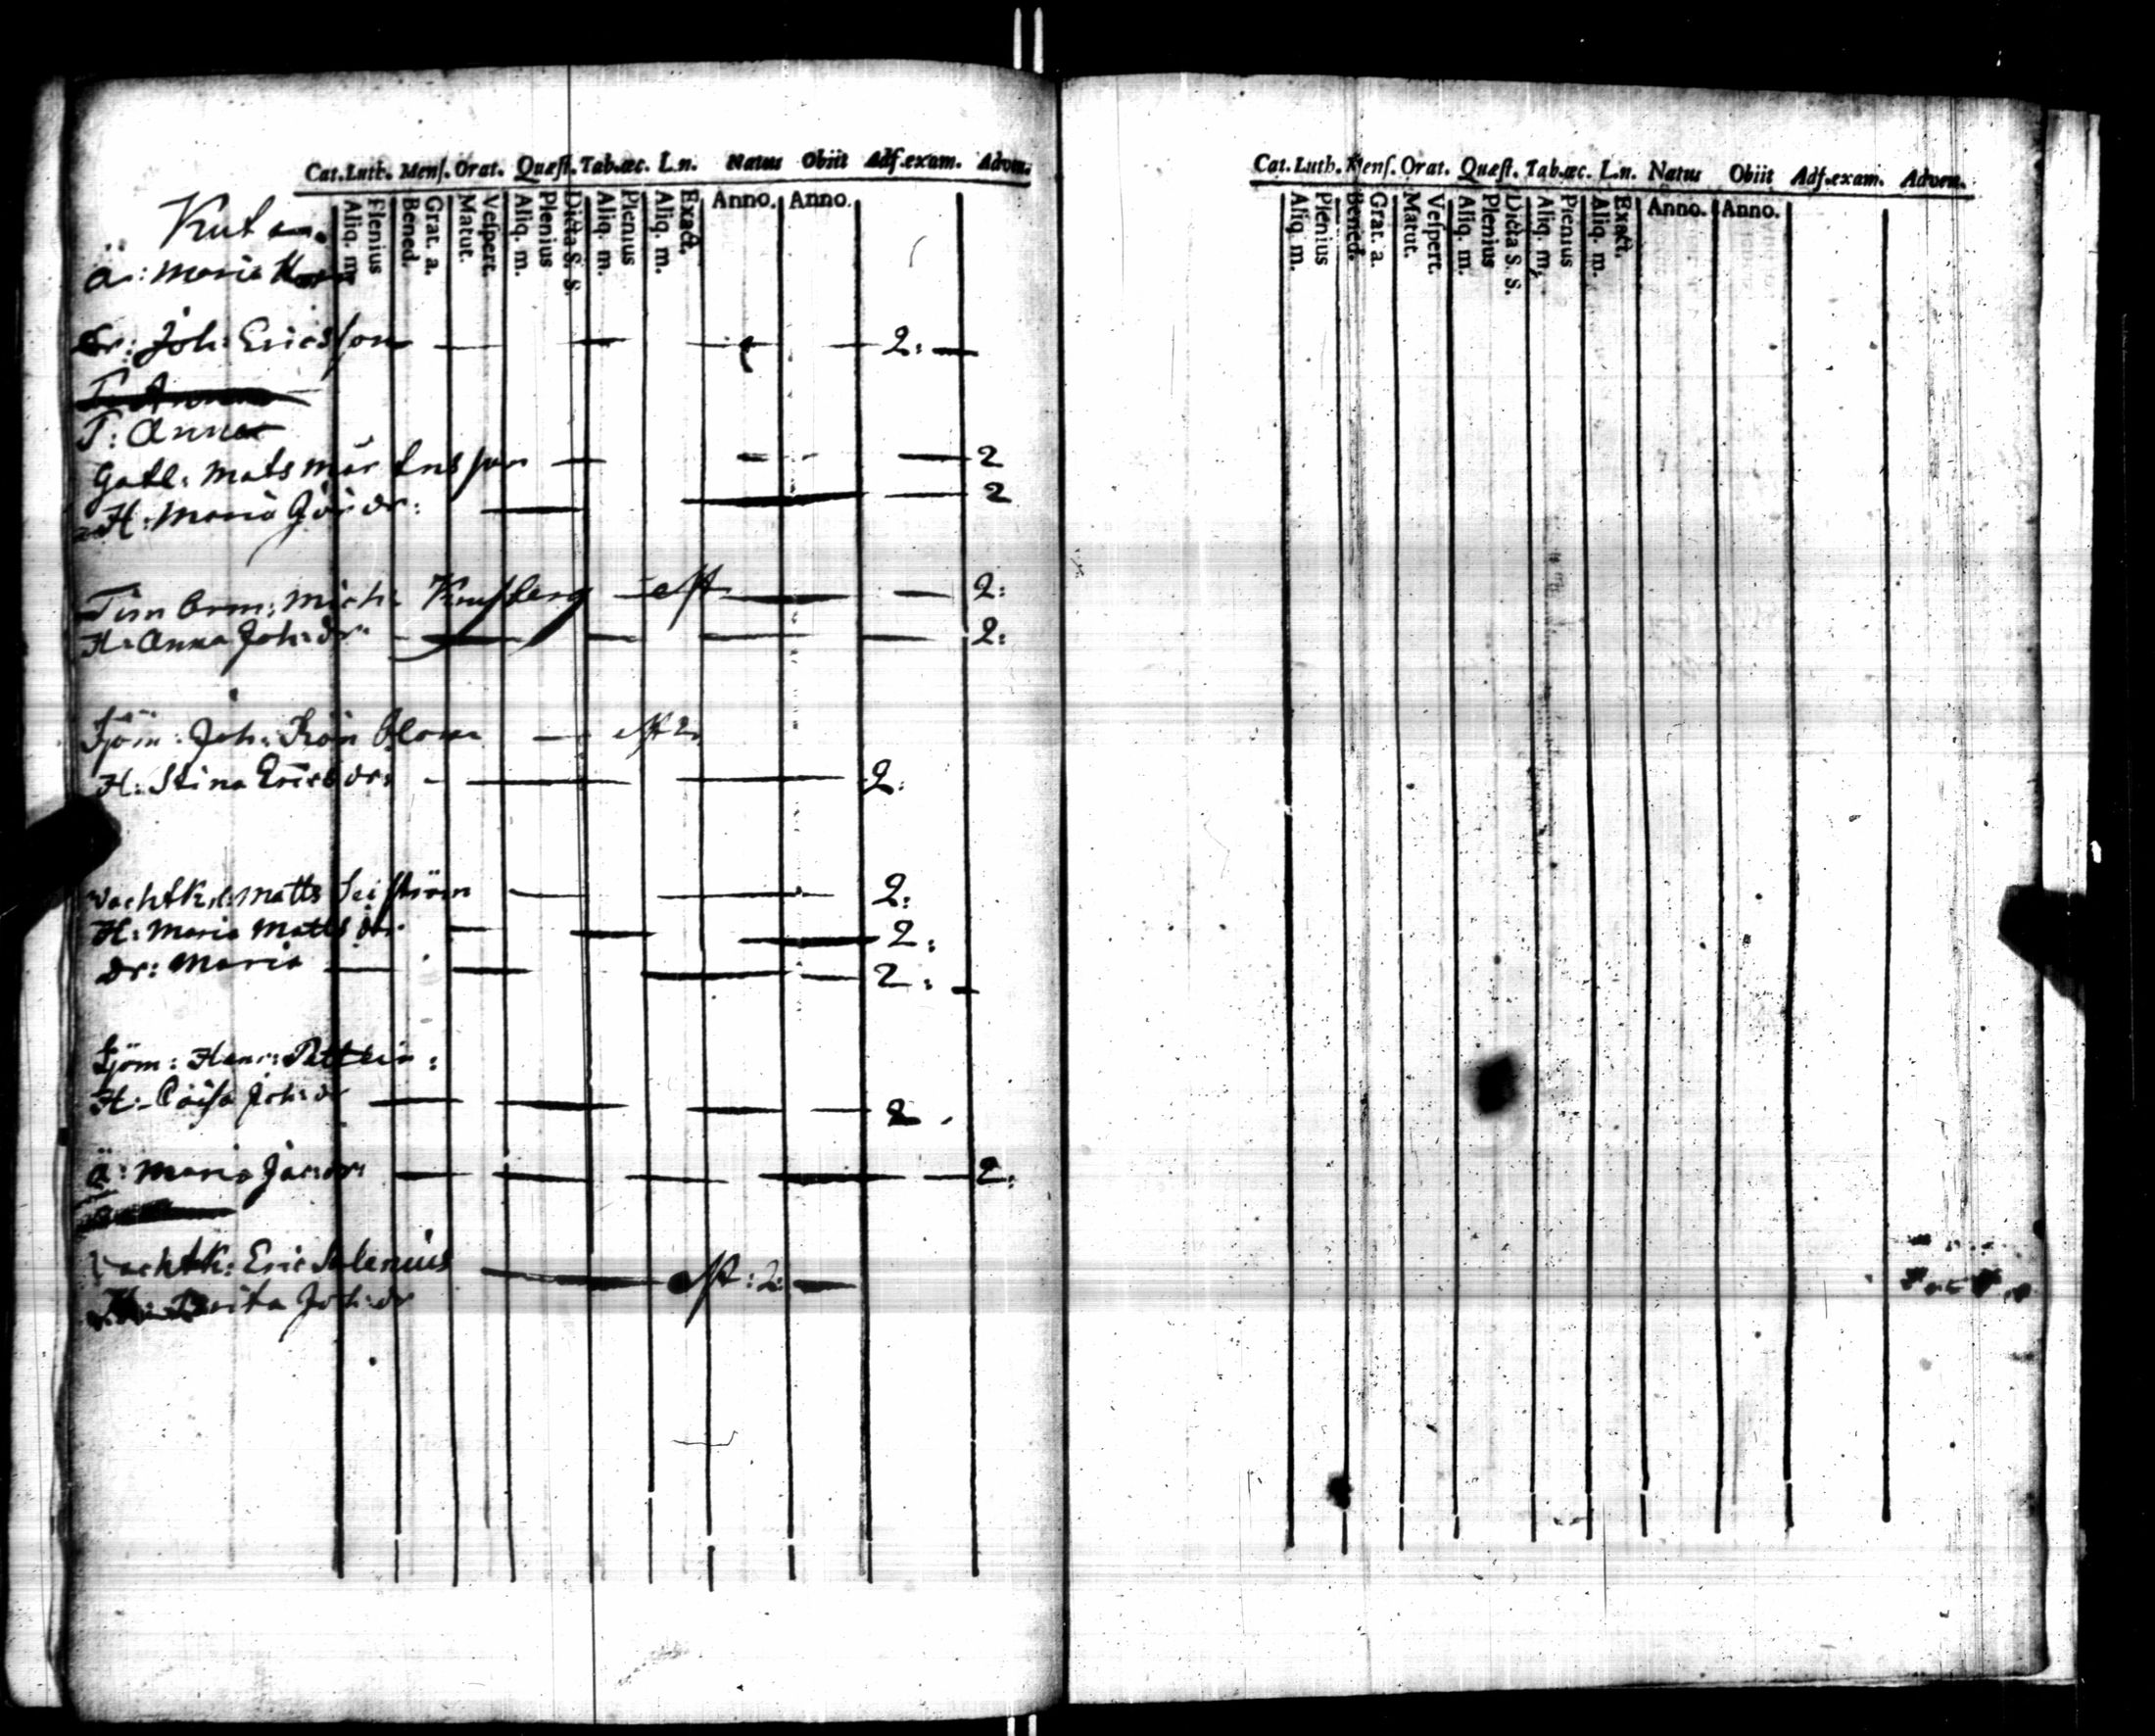 Cat. Luth. Menſ. Orat. Quæſt. Tab. æc. L. n. Natus Obiit Adſ. exam. Adven.
Aliq. m. Plenius Bened. Grat. a. Matut. Veſpert. Aliq. m. Plenius Dicta S. S. Aliq. m. Plenius Aliq. m. Exact. Anno. Anno.
Ä: Maria
Dr: Joh: Ericsson 2:
T: Anna
T: Anna
Gatl: Mats Mårtensson 2
H: Maria Jör dr: 2
Mich: 2:
H: Anna Joh: dr 2:
Sjöm: Joh: 2
H: Stina Ericsdr: 2:
Wachtk.: Matts 2:
H: Maria Matts dr 2:
Dr: Maria 2:
Sjöm: Henr:
H: Caisa Joh: dr 2
Ä: Maria Jac: dr: 2:
Wachtk: Eric Salenius 2:
Brita Joh: dr
Cat. Luth. Menſ. Orat. Quæſt. Tab. æc. L. n. Natus Obiit Adſ. exam. Adven.
Aliq. m. Plenius Bened. Grat. a. Matut. Veſpert. Aliq. m. Plenius Dicta S. S. Aliq. m. Plenius Aliq. m. Exact. Anno. Anno.